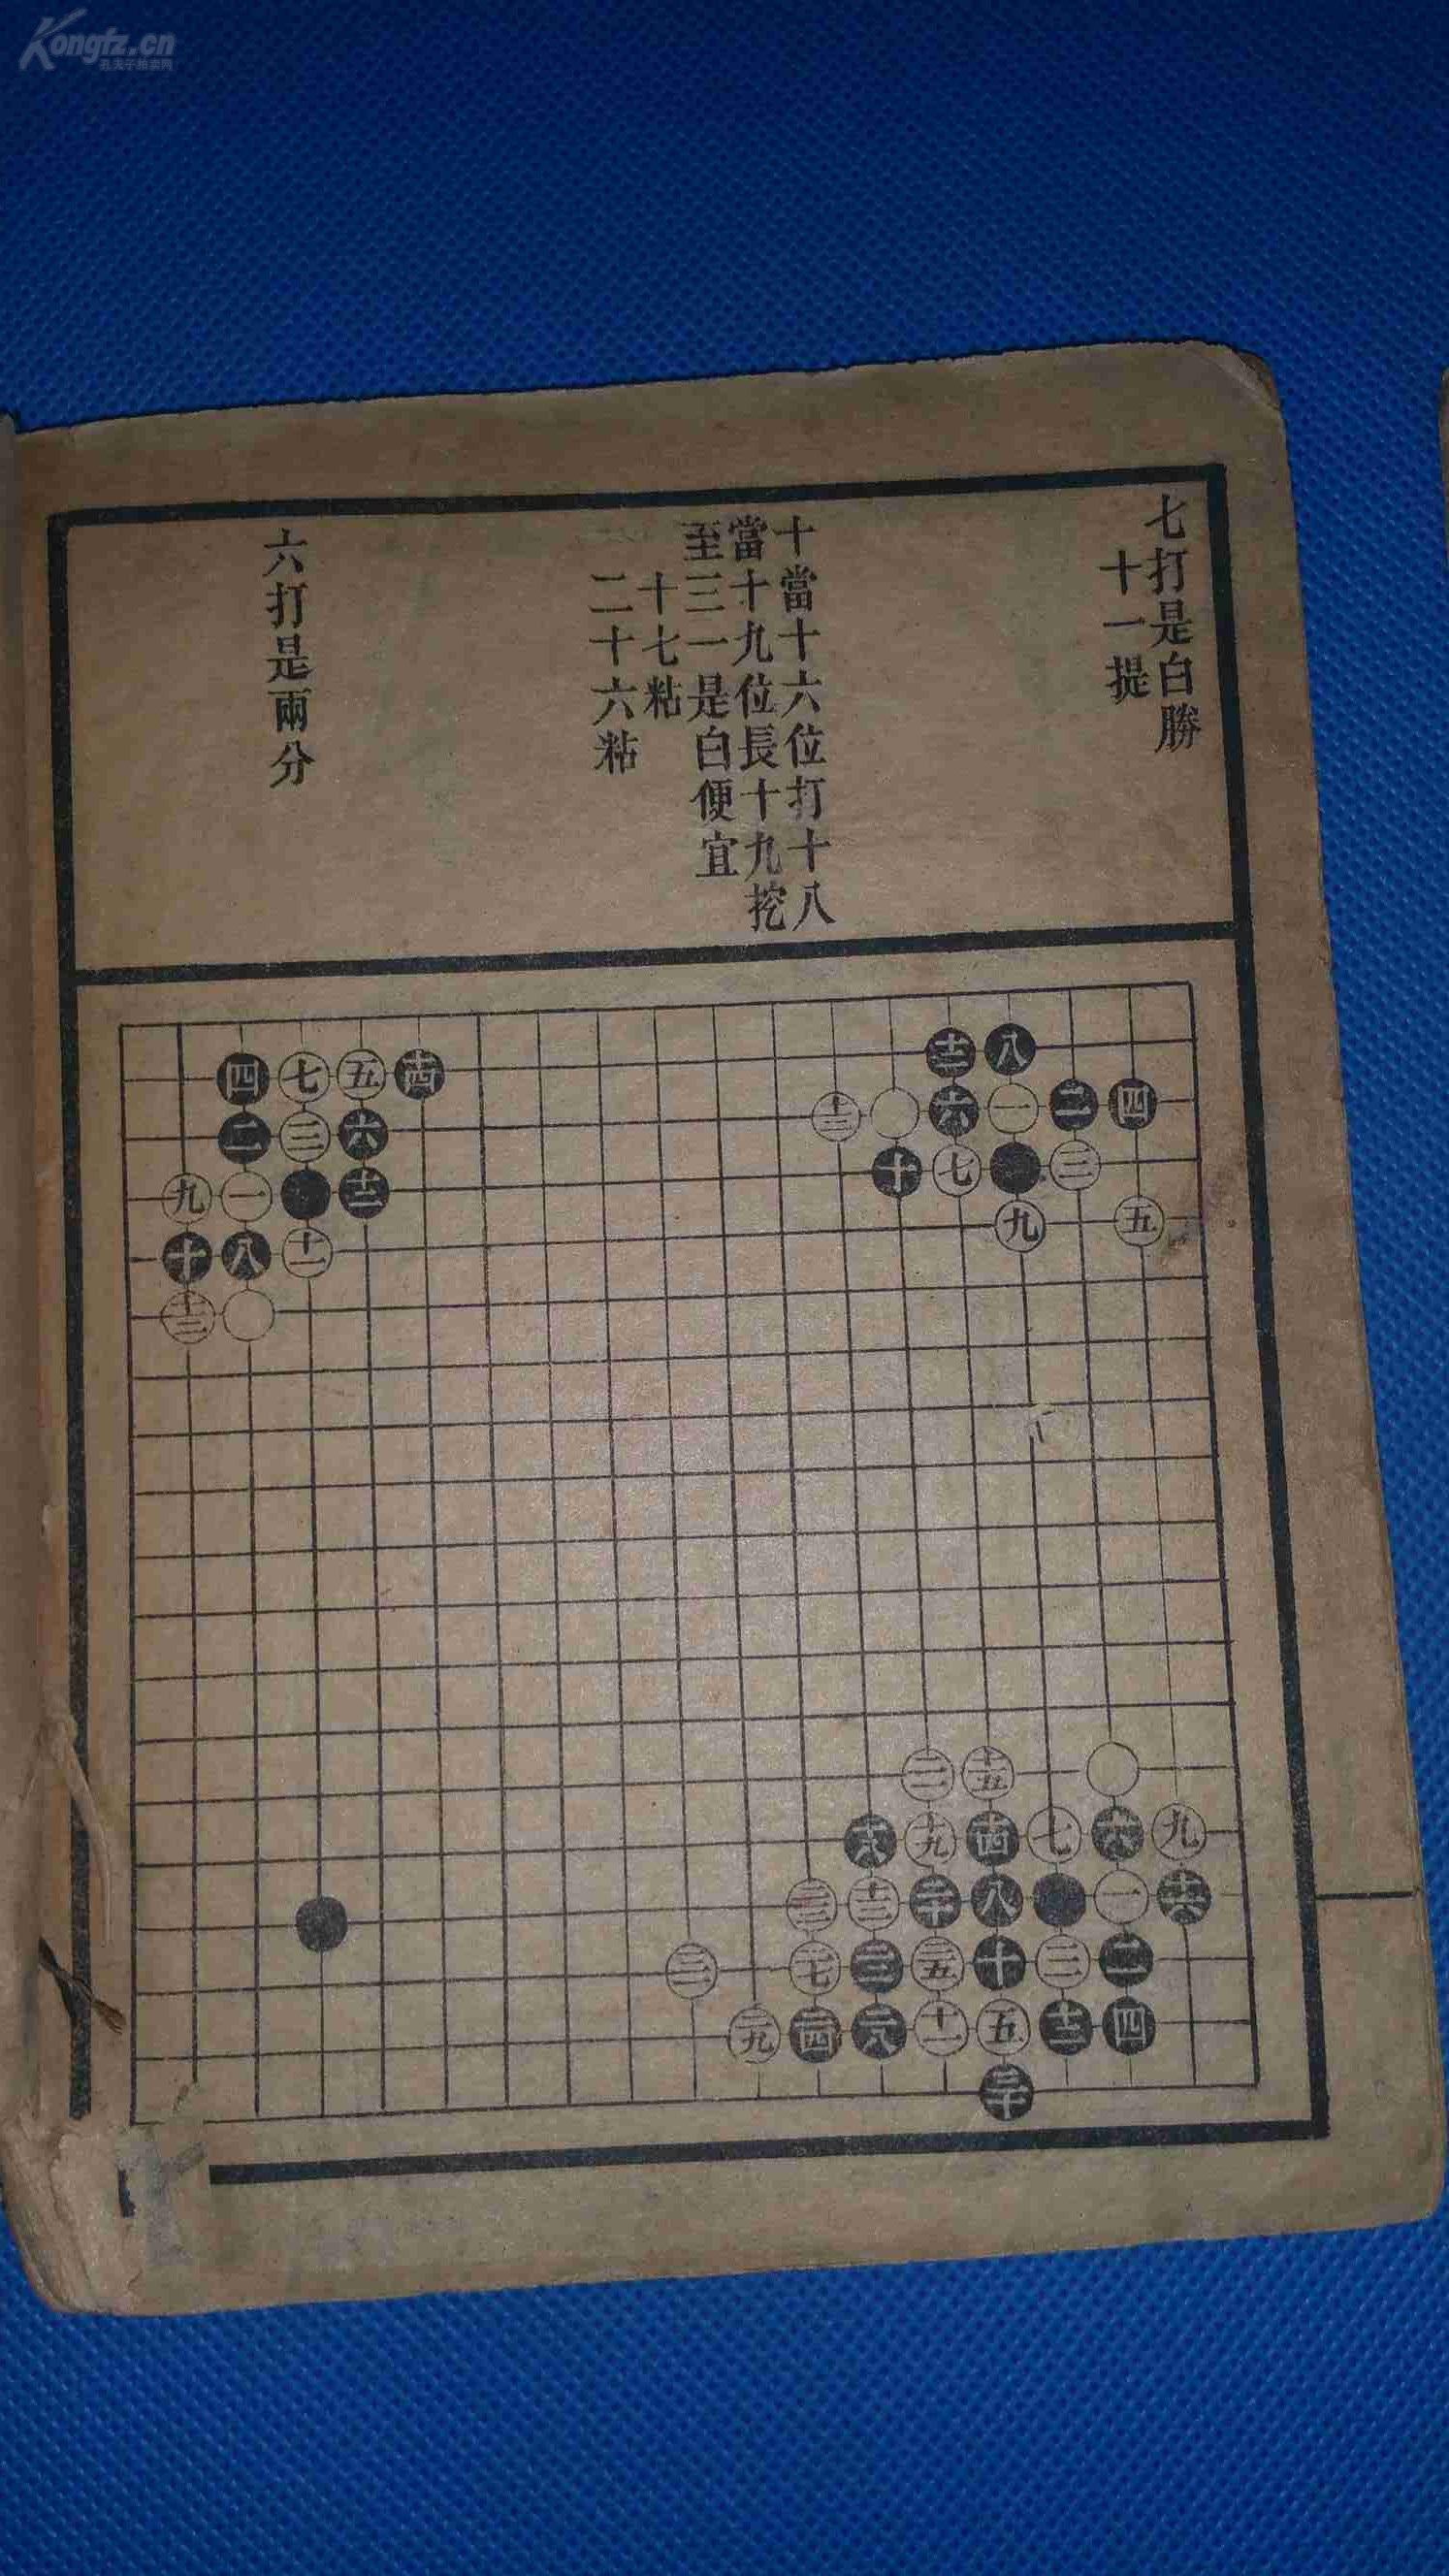 Kongfz.cn
七打是白勝
十一提
十當十六位打十八
當十九位長十九挖
至三一是白便宜
十七粘
二十六粘
六打是兩分
四 七 五 十四
二 三 六
九 一 十二
十 八 十一
十三
十二 八
十三 六 一 二 四
十 七 三
九 五
二一 十五
十八 十九 十四 七 六 九
二三 十三 二十 八 一 十六
三一 二七 二二 二五 十 三 二
二九 二四 二八 十一 五 十二 四
三十